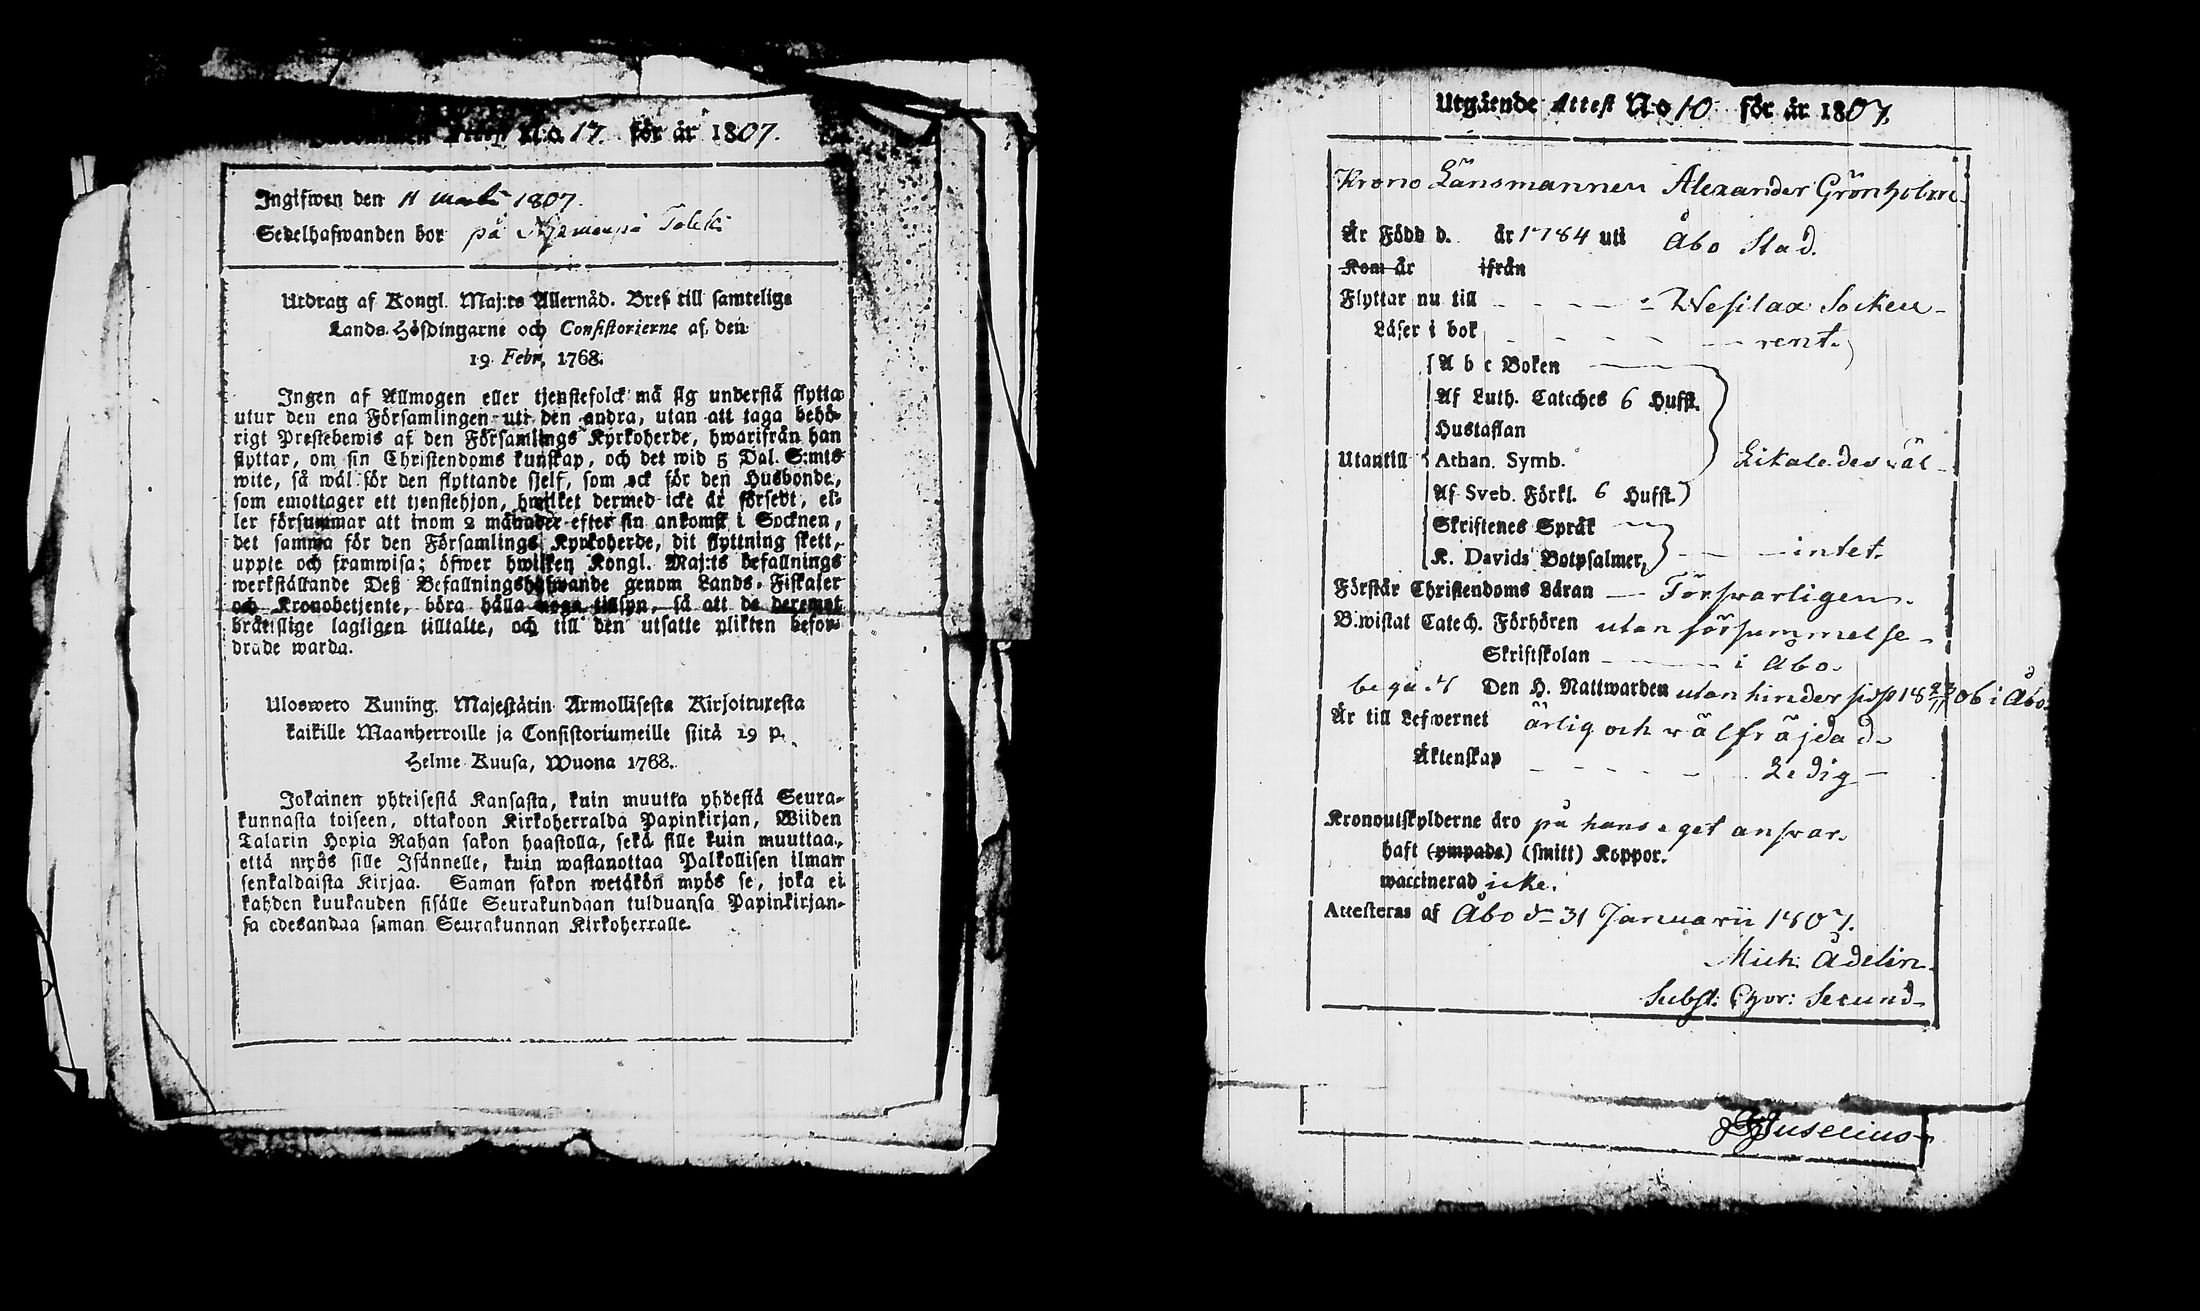 Attest No 17. för år 1807.
Ingifwen den 11 martii 1807.
Sedelhafwanden bor på
Utdrag af Kongl. Maj:ts Allernåd. Bref till samtelige
Lands-Höfdingarne och Consistorierne af den
19 Febr. 1768.
Ingen af Allmogen eller tjenstefolck må sig understå flytta
utur den ena Församlingen uti den andra, utan att taga behö-
rigt Prestebewis af den Församlings Kyrkoherde, hwarifrån han
flyttar, om sin Christendoms kunskap, och det wid 5 Dal. S:mts
wite, så wäl för den flyttande sjelf, som ock för den Husbonde,
som emottager ett tjenstehjon, hwilket dermed icke är försedt, el-
ler försummar att inom 2 månader efter sin ankomst i Socknen,
det samma för den Församlings Kyrkoherde, dit flyttning skett,
uppte och framwisa; öfwer hwilken Kongl. Maj:ts befallnings
werkställande Deß Befallningshafwande genom Lands-Fiskaler
och Kronobetjente, böra hålla noga tillsyn, så att de deremot
bråtslige lagligen tilltalte, och till den utsatte plikten befor-
drade warda.
Uloswero Kuning. Majestätin Armollisesta Kirjoituxesta
kaikille Maanherroille ja Consistoriumeille siitä 19 p.
Helme Kuusa, Wuona 1768.
Jokainen yhteisestä Kansasta, kuin muutta yhdestä Seura-
kunnasta toiseen, ottakoon Kirkoherralda Papinkirjan, Wiiden
Talarin Hopia Rahan sakon haastolla, sekä sille kuin muuttaa,
että myös sille Isännelle, kuin wastanottaa Palkollisen ilman
senkaldaista Kirjaa. Saman sakon wetäkön myös se, joka ei
kahden kuukauden sisälle Seurakundaan tulduansa Papinkirjan-
sa edesandaa saman Seurakunnan Kirkoherralle.
Utgående Attest No 10 för år 1807.
Krono Länsmannen Alexander Grönholm
Är Född d. år 1784 uti Åbo Stad.
Kom år ifrån
Flyttar nu till Wesilax Socken
Läser i bok rent.
A b c Boken
Af Luth. Cateches 6 Hufst.
Hustaflan
Utantill Athan. Symb. Likaledes wäl
Af Sveb. Förkl. 6 Hufst.
Skriftenes Språk
K. Davids Botpsalmer, intet.
Förstår Christendoms Läran Förswarligen.
B.wistat Catech. Förhören utan försummelse
Skriftskolan i Åbo.
begått Den H. Nattwarden utan hinder sidst 18 23/11 06 i Åbo
Är till Lefwernet ärlig och wälfräjdad.
Äktenskap Ledig
Kronoutskylderne äro på hans eget answar.
haft (ympade) (smitt) Koppor.
waccinerad icke.
Attesteras af Åbo dn 31 Januarii 1807.
Mich. Ådelin.
Subst. Chor: Secund.